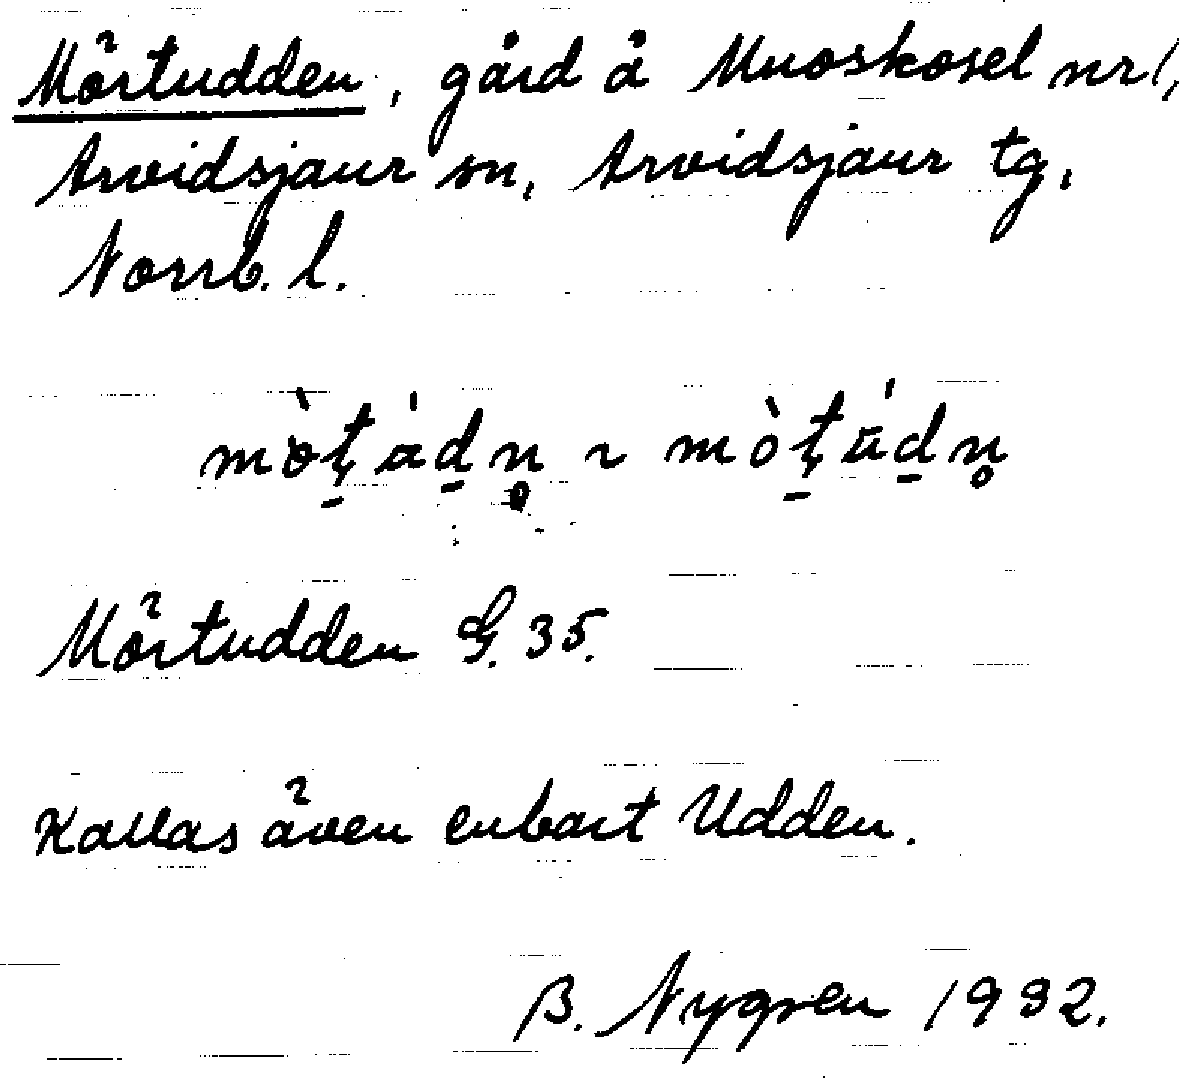 Mörtudden, gård å Muoskosel nr 1,
Arvidsjaur sn, Arvidsjaur tg,
Norrb. l.
Mörtudden G. 35.
Kallas även enbart Udden.
B. Nygren 1932.